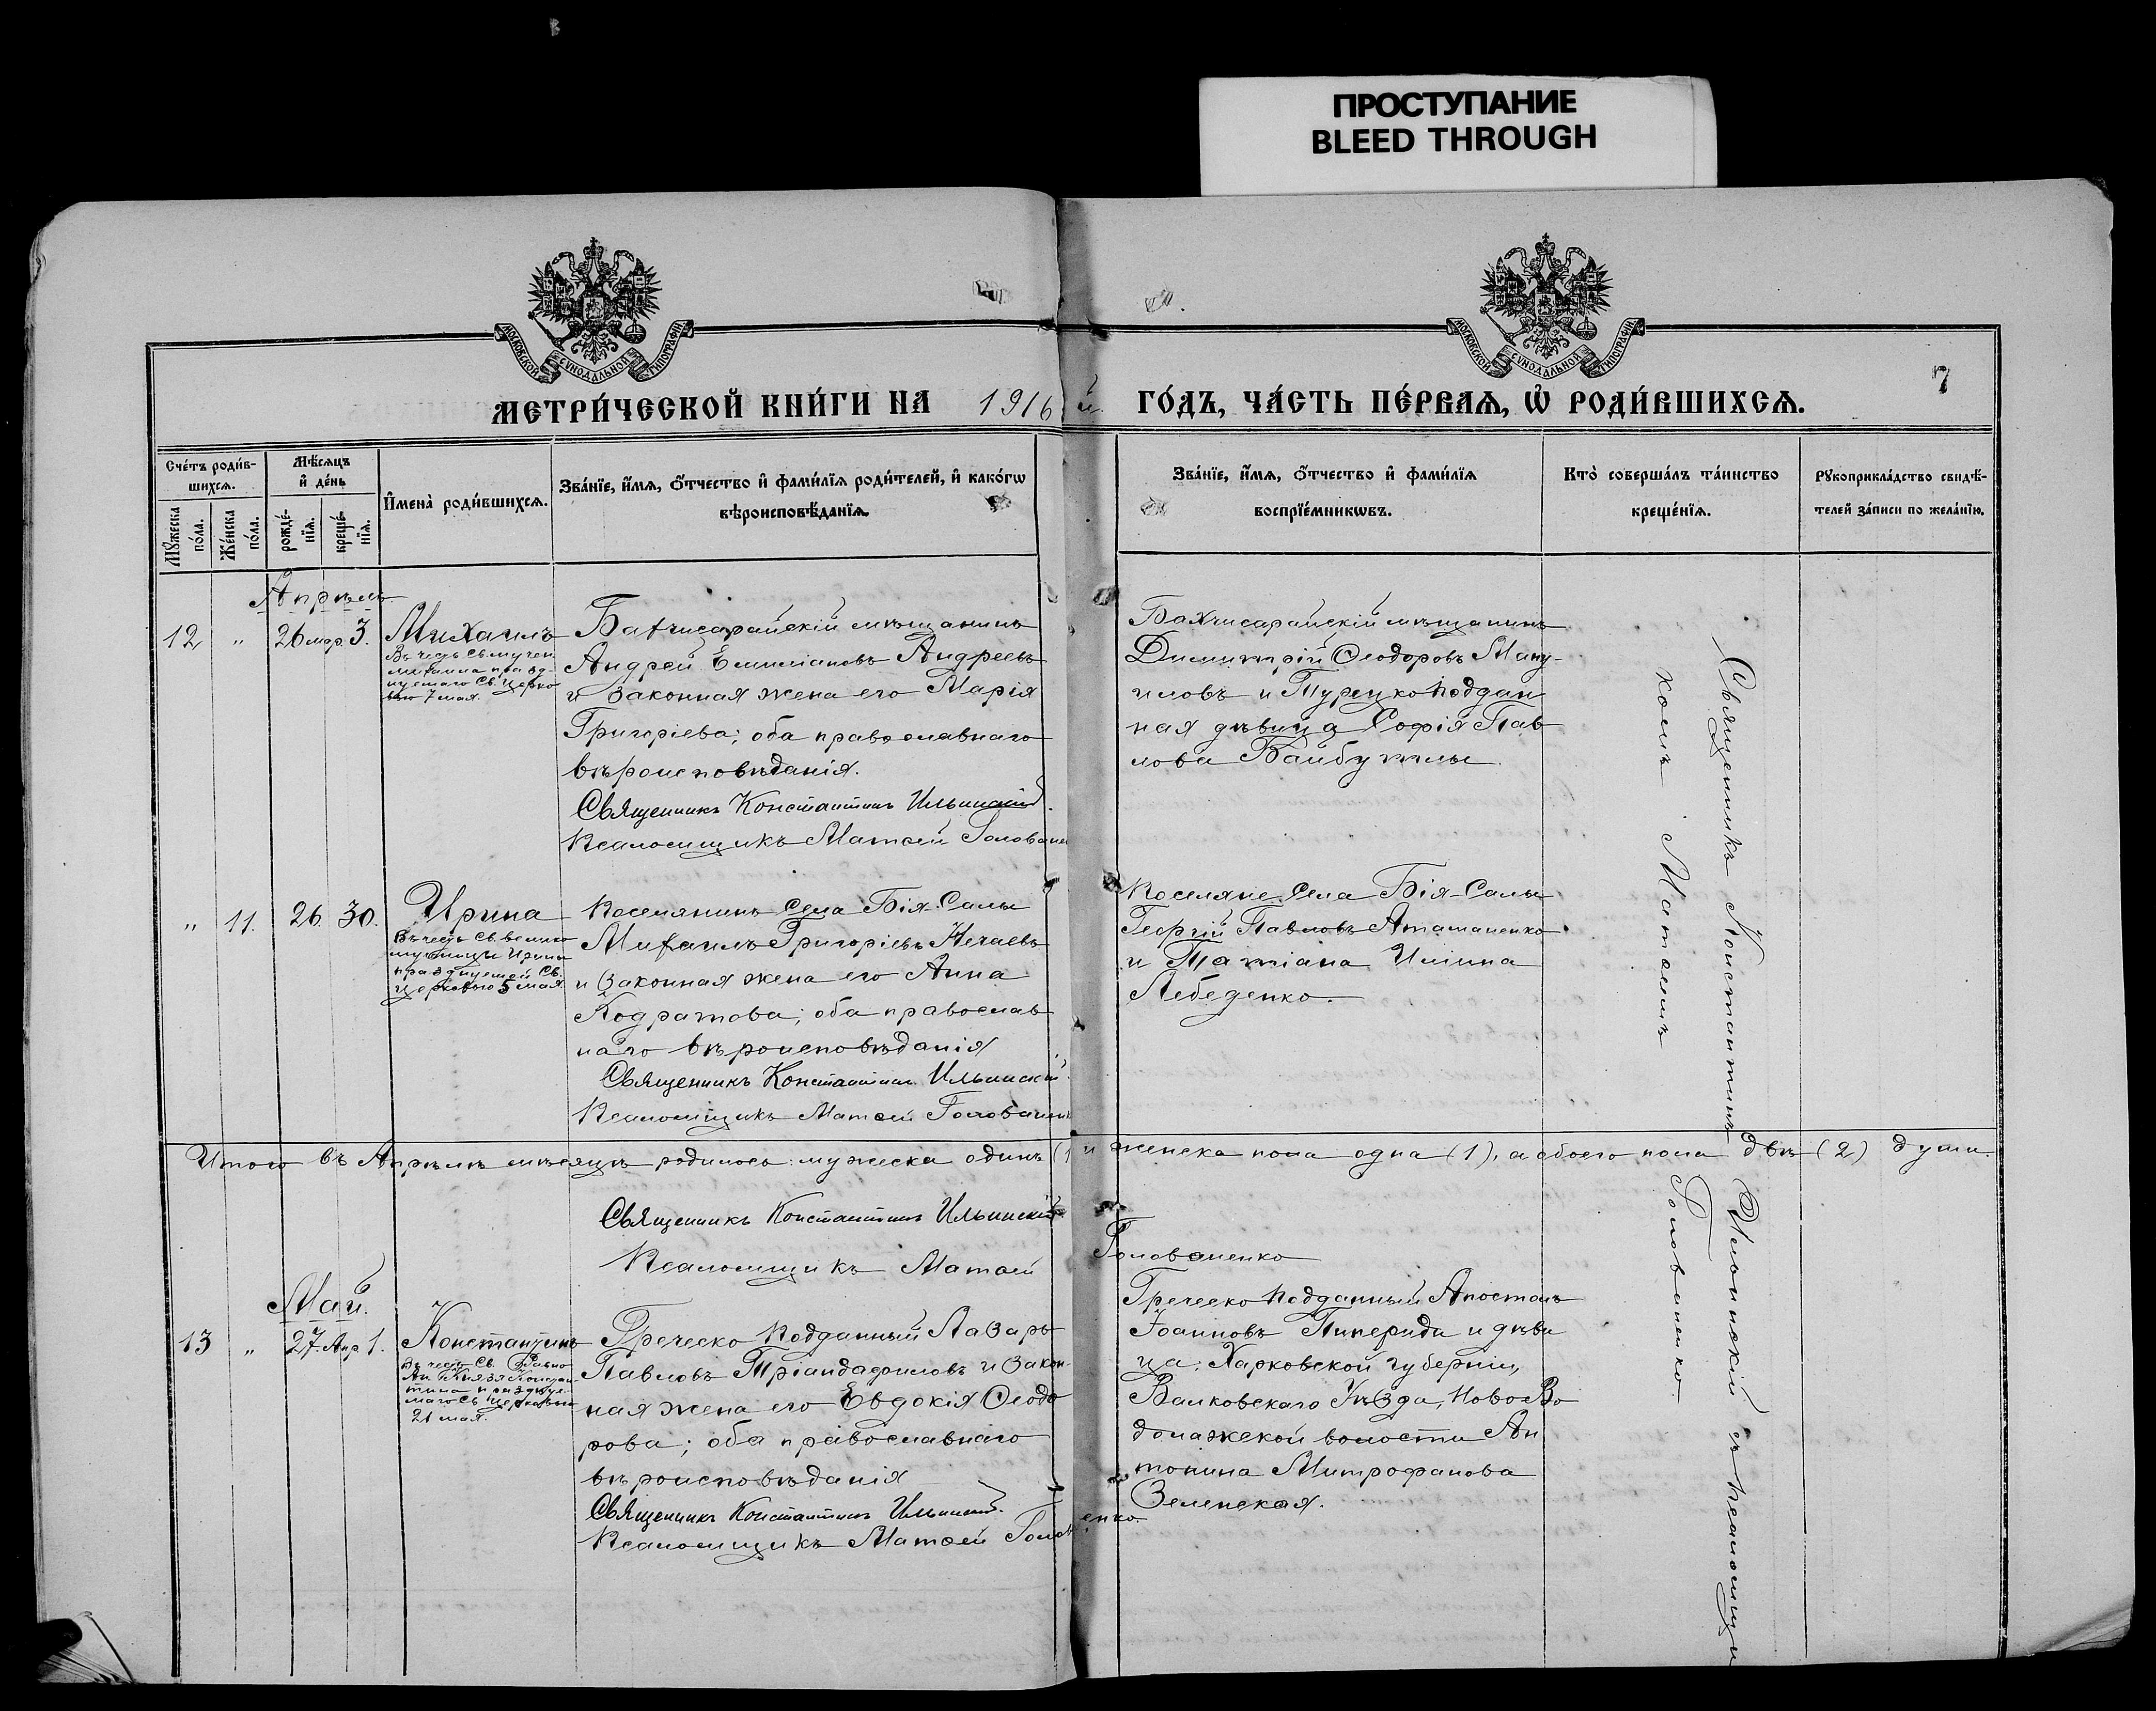 ПРОСТУПАНИЕ
BLEED THROUGH
МОСКОВСКОЙ СУНОДАЛЬНОЙ ТИПОГРАФІИ
МОСКОВСКОЙ СУНОДАЛЬНОЙ ТИПОГРАФІИ
7
МЕТРИ́ЧЕСКОЙ КНИ́ГИ НА 1916 й ГО́ДЪ, ЧА́СТЬ ПЕ́РВАѦ, Ѡ РОДИ́ВШИХСѦ.
Сче́тъ роди́в-
шихсѧ.
Мѣ́сѧцъ
и҆ де́нь
Мꙋ́жеска
по́ла.
Же́нска
по́ла.
рожде́-
нїѧ.
креще́-
нїѧ.
И҆мена̀ роди́вшихсѧ.
Зва́нїе, и҆́мѧ, ѻ҆́тчество и҆ фами́лїѧ роди́телей, и҆ како́гѡ
вѣроисповѣ́данїѧ.
Зва́нїе, и҆́мѧ, ѻ҆́тчество и҆ фами́лїѧ
воспрїе́мникѡвъ.
Кто̀ соверша́лъ та́инство
креще́нїѧ.
Рꙋкоприкла́дство свидѣ́-
телей за́писи по жела́нїю.
Апрѣль
12 " 26 мар. 3. Михаилъ
Въ честь Св. мучен.
Михаила празд-
нуемаго Св. Церко
вью 7 мая.
Бахчисарайскій мѣщанинъ
Андрей Емиліановъ Андреевъ
и законная жена его Марія
Григоріева; оба православнаго
вѣроисповѣданія.
Священникъ Константинъ Ильинскій.
Псаломщикъ Матѳей Голованен
Бахчисарайскій мѣщанинъ
Димитрій Ѳеодоровъ Ману-
иловъ и Турецкоподдан
ная дѣвица Софія Пав
лова Байбуртлы.
" 11. 26. 30. Ирина
Въ честь Св. велико
мученицы Ирины
празднуемой Св.
Церковью 5 мая
Поселянинъ Села Бія-Салы
Михаилъ Григоріевъ Нечаевъ
и законная жена его Анна
Кодратова; оба православ
наго вѣроисповѣданія
Священникъ Константинъ Ильинскій.
Псаломщикъ Матѳей Голованен
Поселяне Села Бія-Салы
Георгій Павловъ Атаманенко
и Татіана Иліина
Лебеденко.
Итого въ Апрѣлѣ мѣсяцѣ родилось: мужеска одинъ (1 и женска пола одна (1), а обоего пола двѣ (2) души.
Священникъ Константинъ Ильинскій
Псаломщикъ Матѳей Голованенко
Май.
13 " 27. Апр 1. Константинъ
Въ честь Св. Равно
Ап. Князя Констан-
тина празднуе-
маго Св. Церковью
21 мая.
Греческо подданный Лазарь
Павловъ Тріандафиловъ и закон-
ная жена его Евдокія Ѳеодо
рова; оба православнаго
вѣроисповѣданія
Священникъ Константинъ Ильинскій.
Псаломщикъ Матѳей Голован енко.
Греческо подданный Апостолъ
Іоанновъ Пипериди и дѣви
ца, Харковской губерніи,
Валковскаго Уѣзда, Ново Во
долажской волости Ан
тонина Митрофанова
Зеленская.
Священникъ Константинъ Ильинскій съ псаломщи
комъ Матѳеемъ Голованенко